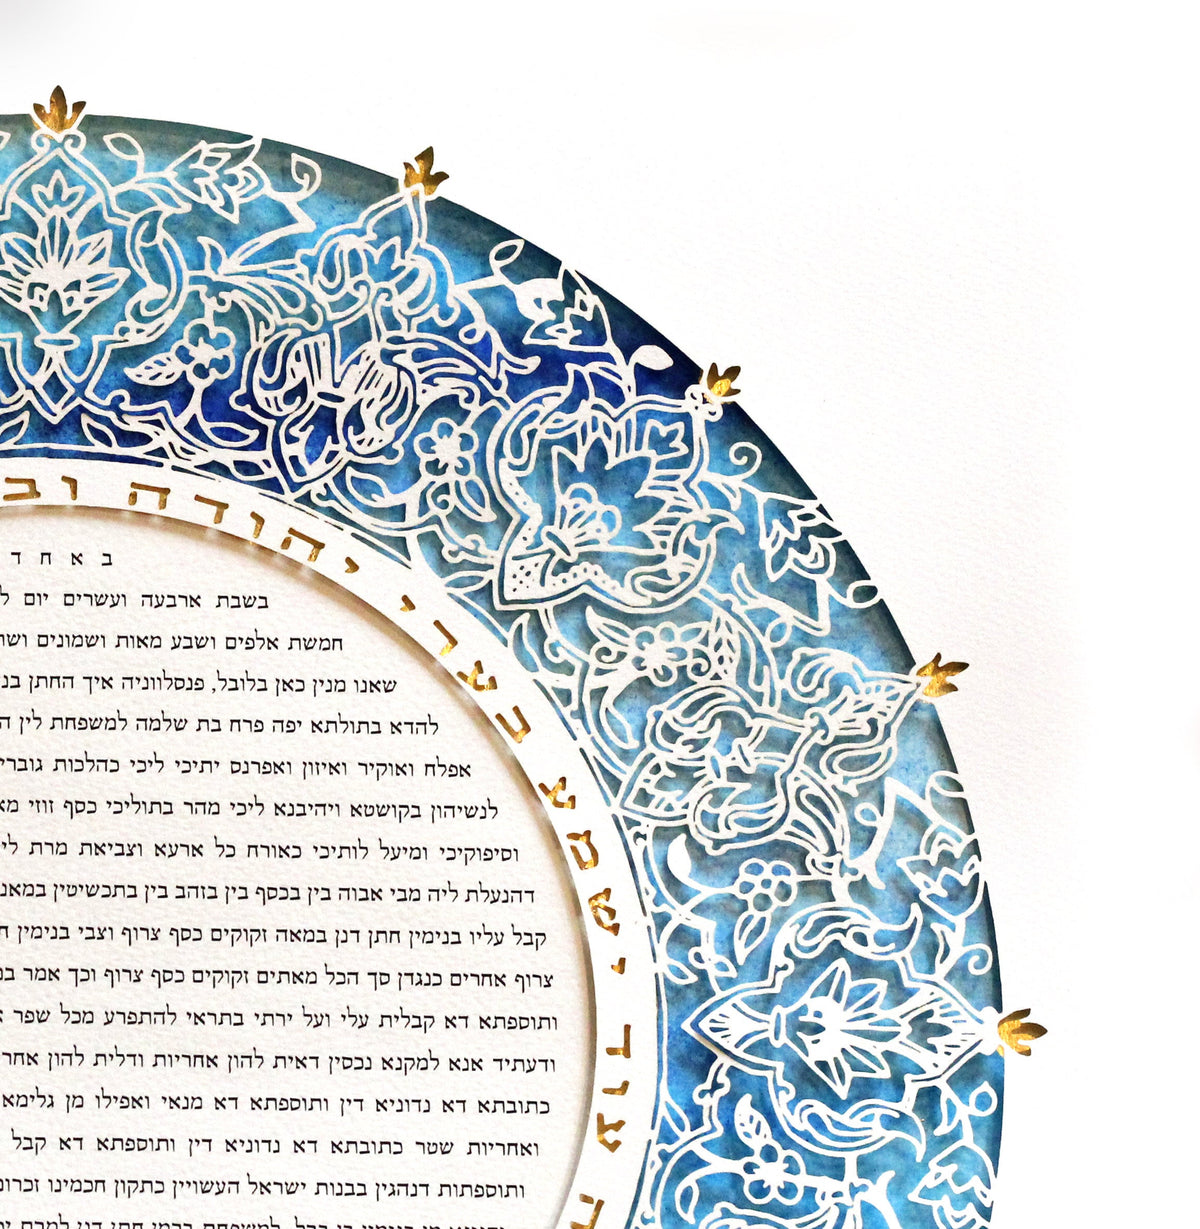 עוד ישמע בערי יהודה וב
באחד
בשבת ארבעה ועשרים יום ל
חמשת אלפים ושבע מאות ושמונים
שאנו מנין כאן בלובל, פנסלווניה איך החתן בנ
להדא בתולתא יפה פרח בת שלמה למשפחת לין ה
אפלח ואוקיר ואיזון ואפרנס יתיכי ליכי כהלכות גוברי
לנשיהון בקושטא ויהיבנא ליכי מהר בתוליכי כסף זוזי מא
וסיפוקיכי ומיעל לותיכי כאורח כל ארעא וצביאת מרת לי
דהנעלת ליה מבי אבוה בין בכסף בין בזהב בין בתכשיטין במאנ
קבל עליו בנימין חתן דנן במאה זקוקים כסף צרוף וצבי בנימין ח
צרוף אחרים כנגדן סך הכל מאתים זקוקים כסף צרוף וכך אמר בנ
ותוספתא דא קבלית עלי ועל ירתי בתראי להתפרע מכל שפר א
ודעתיד אנא למקנא נכסין דאית להון אחריות ודלית להון אחר
כתובתא דא נדוניא דין ותוספתא דא מנאי ואפילו מן גלימא
ואחריות שטר כתובתא דא נדוניא דין ותוספתא דא קבל
ותוספתות דנהגין בבנות ישראל העשויין כתקון חכמינו זכרונ